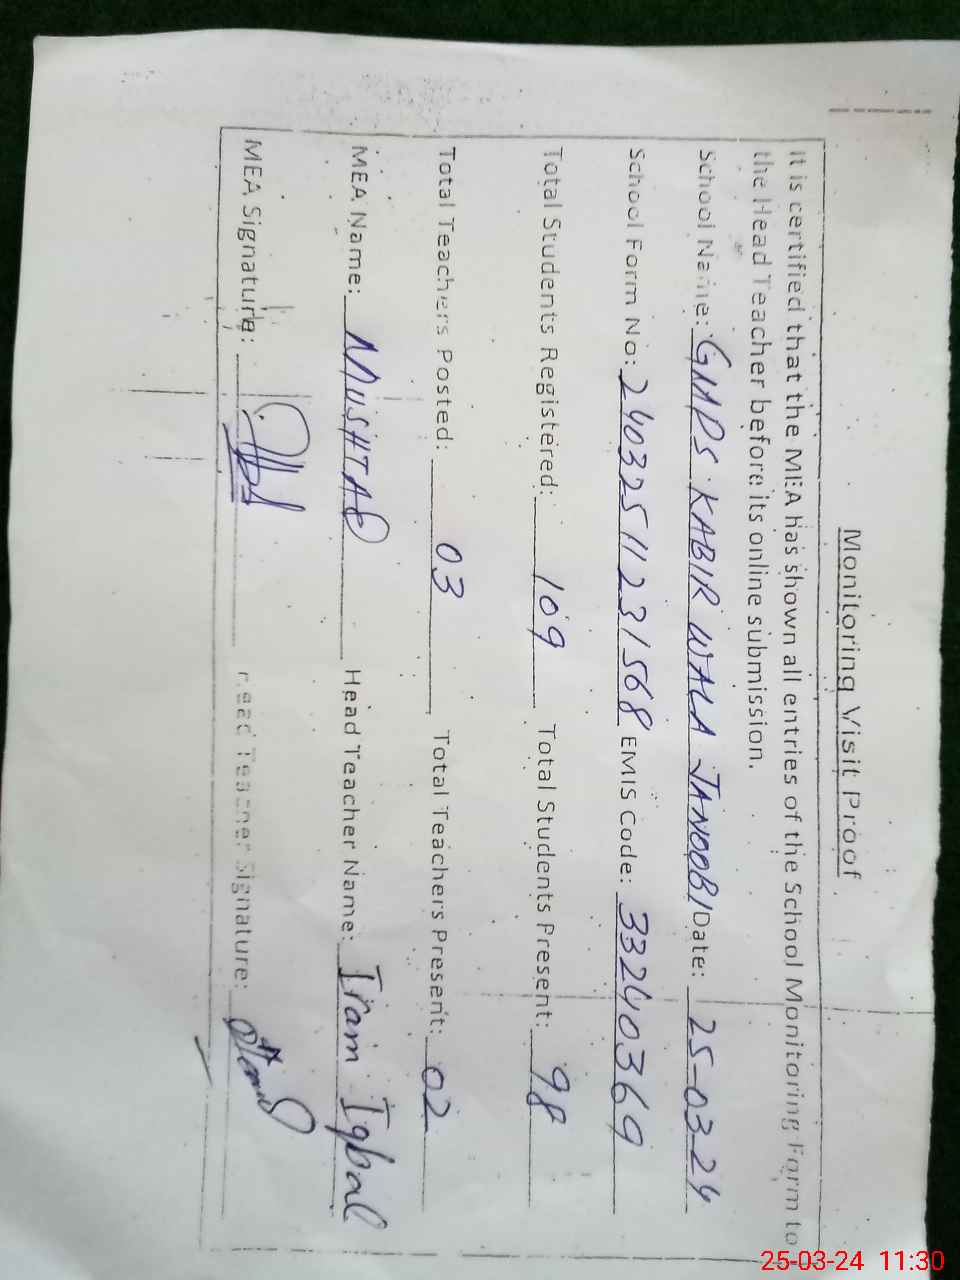 Monitoring Visit Proof
It is certified that the MEA has shown all entries of the School Monitoring Form to
the Head Teacher before its online submission.
School Name: GMPS KABIR WALA JANOOBI Date: 25-03-24
School Form No: 24032511231568 EMIS Code: 33240369
Total Students Registered: 109 Total Students Present: 98
Total Teachers Posted: 03 Total Teachers Present: 02
MEA Name: MUSHTAQ Head Teacher Name: Iram Iqbal
MEA Signature: Head Teacher Signature:
25-03-24 11:30